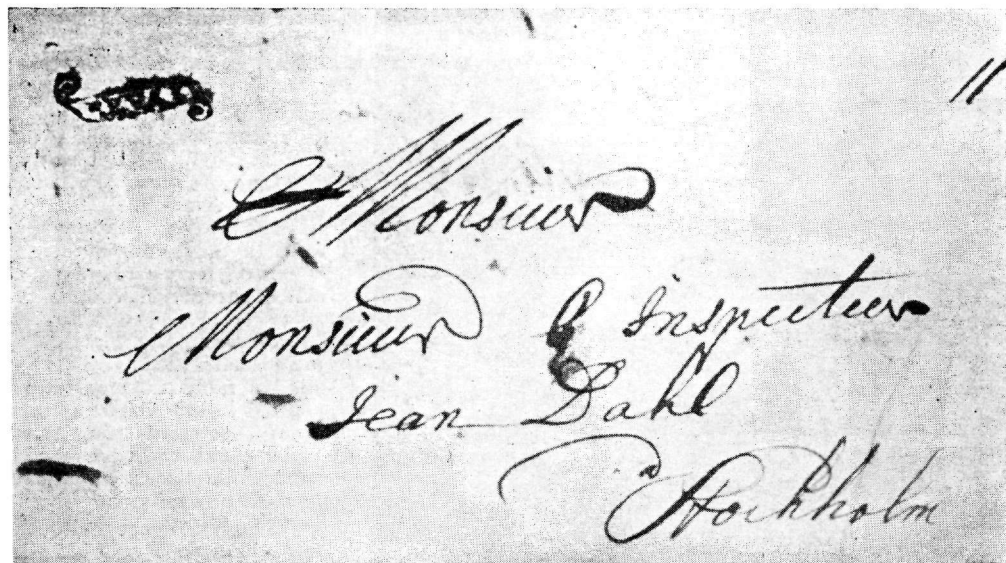 Monsieur
Monsieur L'Inspecteur
Jean Dahl
a Stockholm